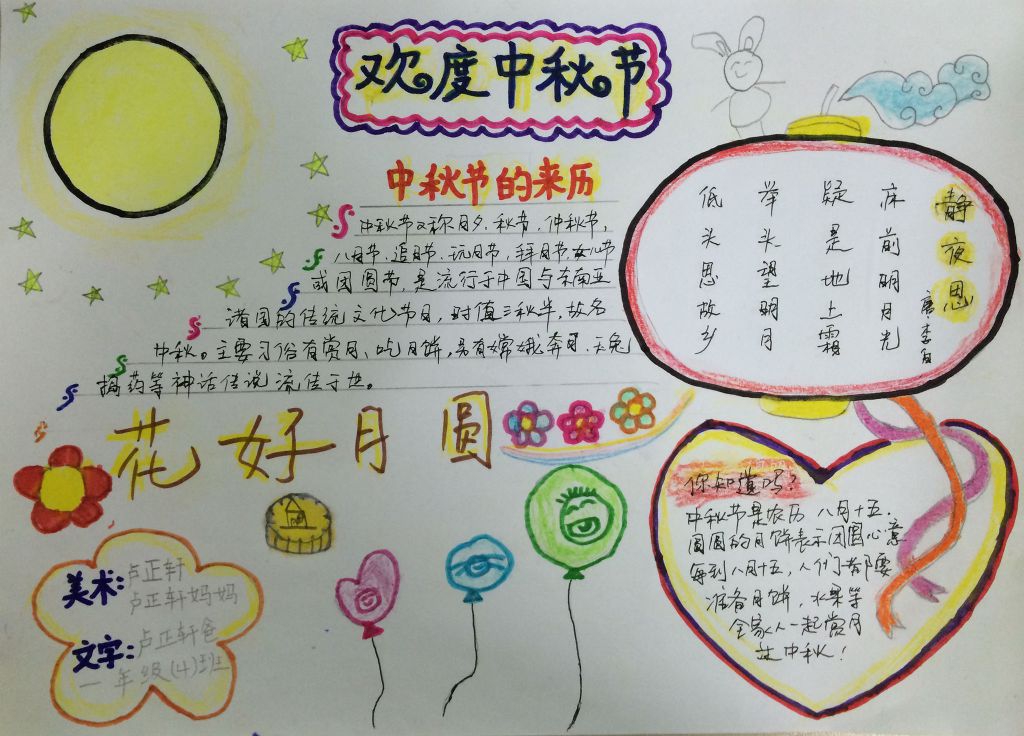 欢度中秋节
中秋节的来历
中秋节又称月夕、秋节、仲秋节,
八月节、追月节、玩月节、拜月节、女儿节
或团圆节,是流行于中国与东南亚
诸国的传统文化节日,时值三秋半,故名
中秋。主要习俗有赏月、吃月饼,另有嫦娥奔月、玉兔
捣药等神话传说流传于世。
静夜思
唐李白
床前明月光
疑是地上霜
举头望明月
低头思故乡
花好月圆
你知道吗?
中秋节是农历八月十五.
圆圆的月饼表示团圆心意
每到八月十五,人们都要
准备月饼,水果等
全家人一起赏月
过中秋!
美术:卢正轩
卢正轩妈妈
文字:卢正轩爸
一年级(4)班